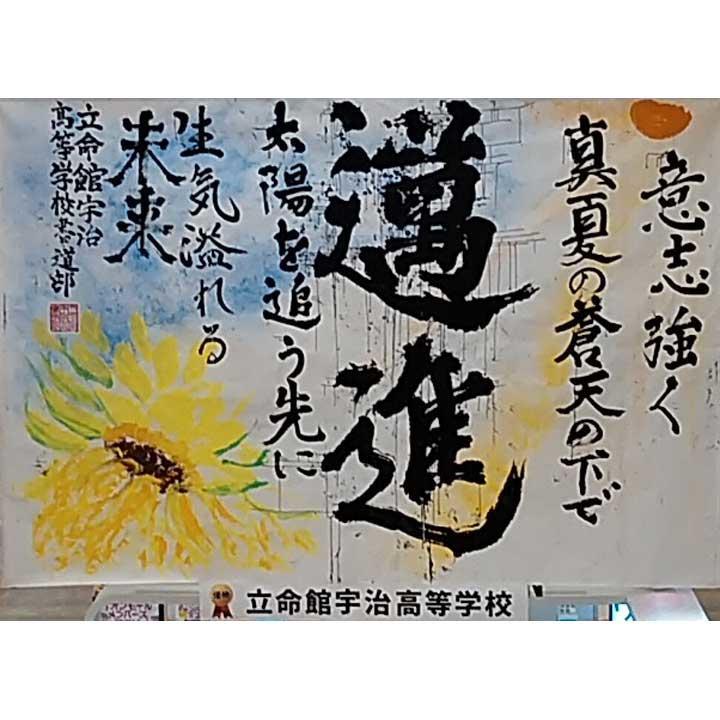 意志強く
真夏の蒼天の下で
邁進
太陽を追う先に
生気溢れる
未来
立命館宇治
高等学校書道部
優勝
立命館宇治高等学校